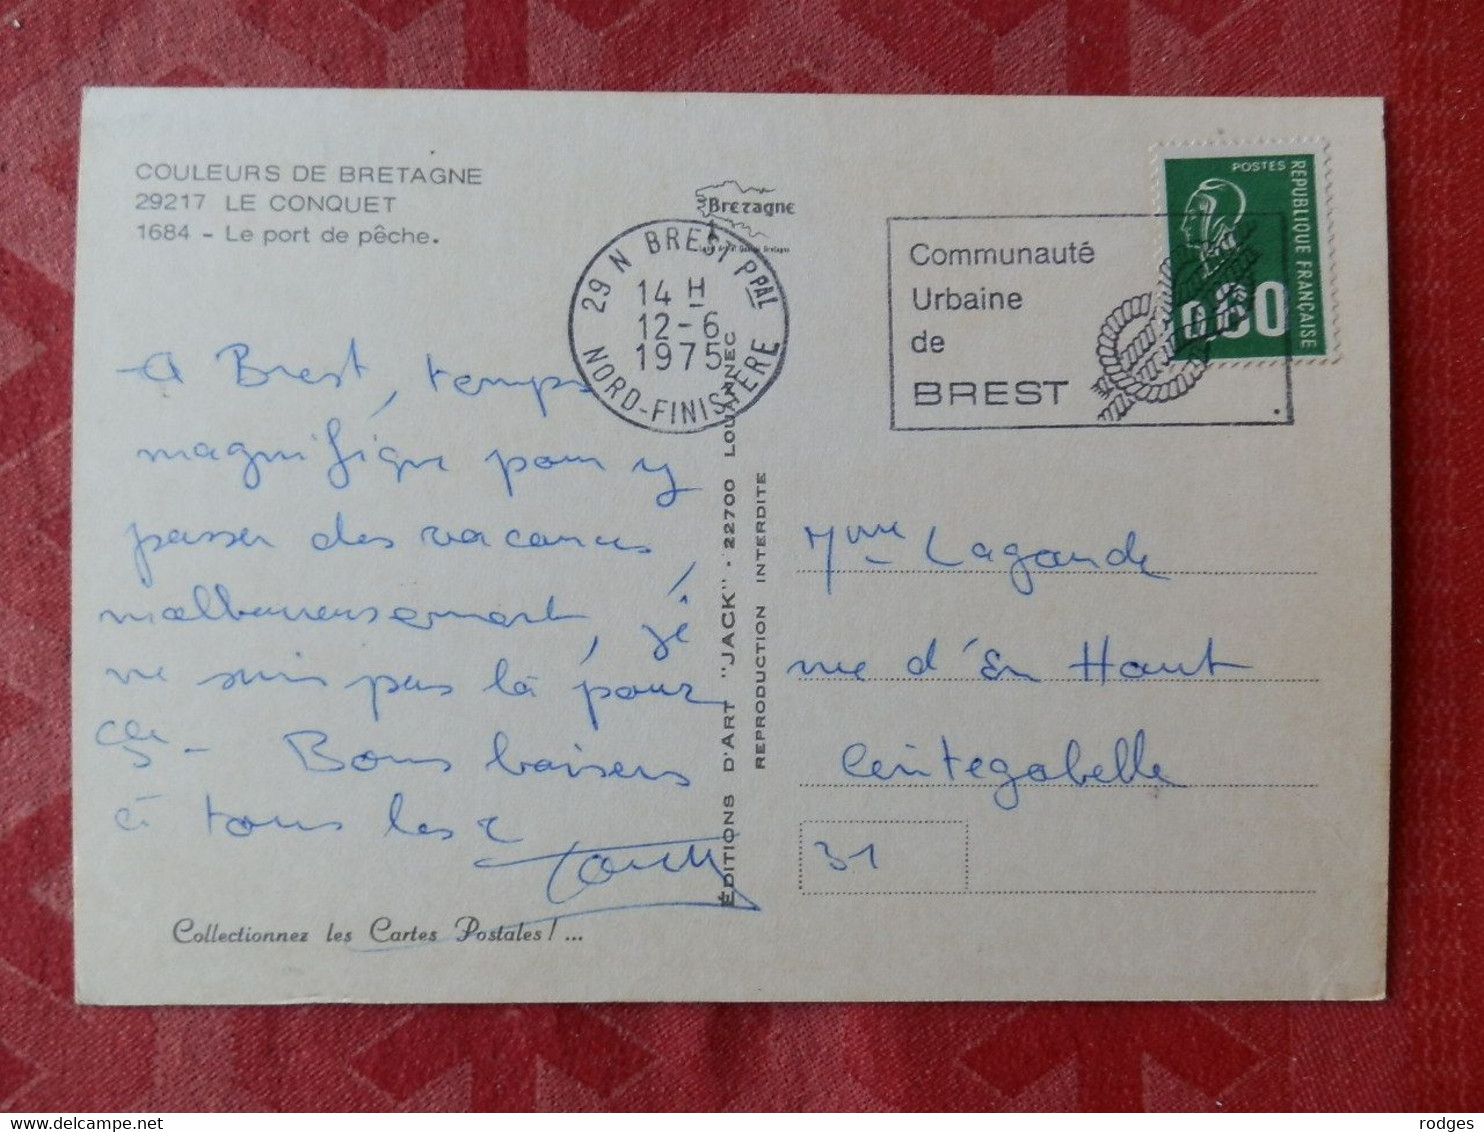 COULEURS DE BRETAGNE
29217 LE CONQUET
1684 - Le port de pêche.
Bretagne
29 N BREST PPAL
14 H
12-6
1975
NORD-FINISTERE
Communauté
Urbaine
de
BREST
POSTES
REPUBLIQUE FRANÇAISE
0.60
A Brest, temps
magnifique pour y
passer des vacances,
malheureusement, je
ne suis pas là pour
ça - Bons baisers
à tous les 2
Collectionnez les Cartes Postales!...
ÉDITIONS D'ART "JACK" - 22700 LOUANNEC
REPRODUCTION INTERDITE
Mme Lagarde
rue d'En Haut
Cintegabelle
31
rodges